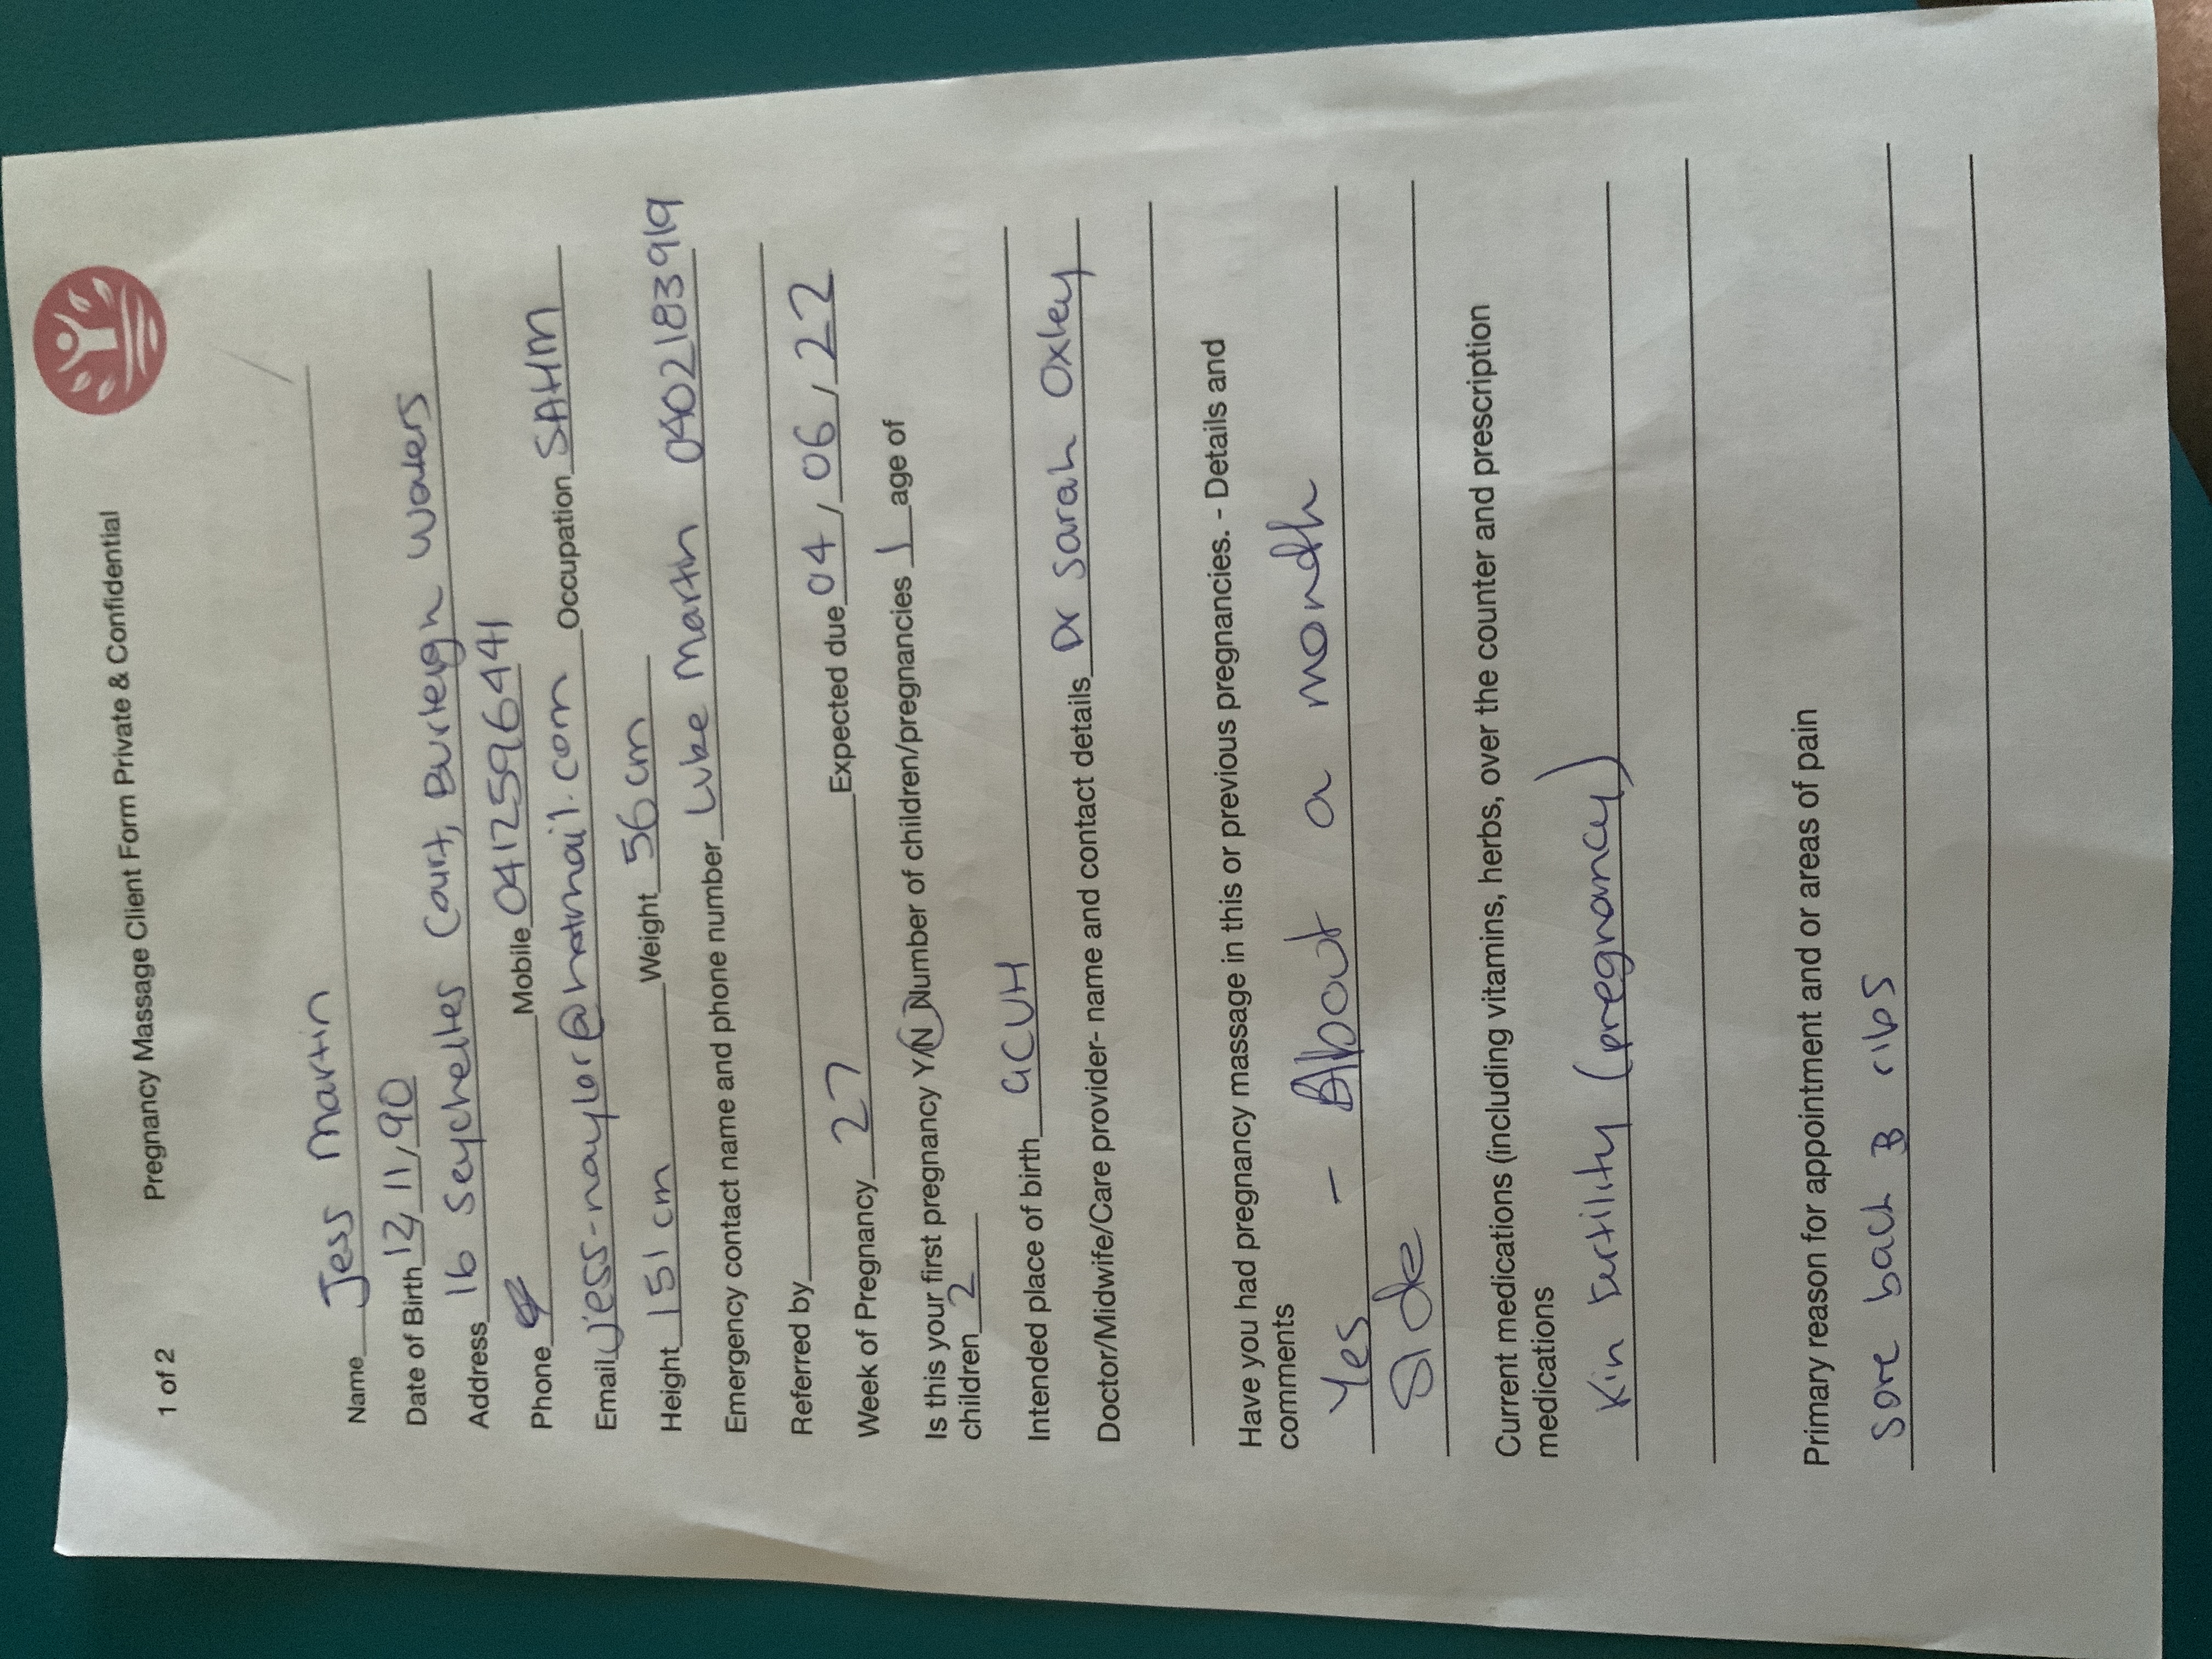 1 of 2 Pregnancy Massage Client Form Private & Confidential
Name Jess Martin
Date of Birth 12/11/90
Address 16 Seychelles Court, Burleigh Waters
Phone Mobile 0412596441
Email jess-naylor@hotmail.com Occupation SAHM
Height 151cm Weight 56cm
Emergency contact name and phone number Luke Martin 0402183919
Referred by
Week of Pregnancy 27 Expected due 04/06/22
Is this your first pregnancy Y/N Number of children/pregnancies 1 age of
children 2
Intended place of birth GCUH
Doctor/Midwife/Care provider- name and contact details Dr Sarah Oxley
Have you had pregnancy massage in this or previous pregnancies. - Details and
comments
Yes - About a month
Side
Current medications (including vitamins, herbs, over the counter and prescription
medications
Kin fertility (pregnancy)
Primary reason for appointment and or areas of pain
Sore back & ribs